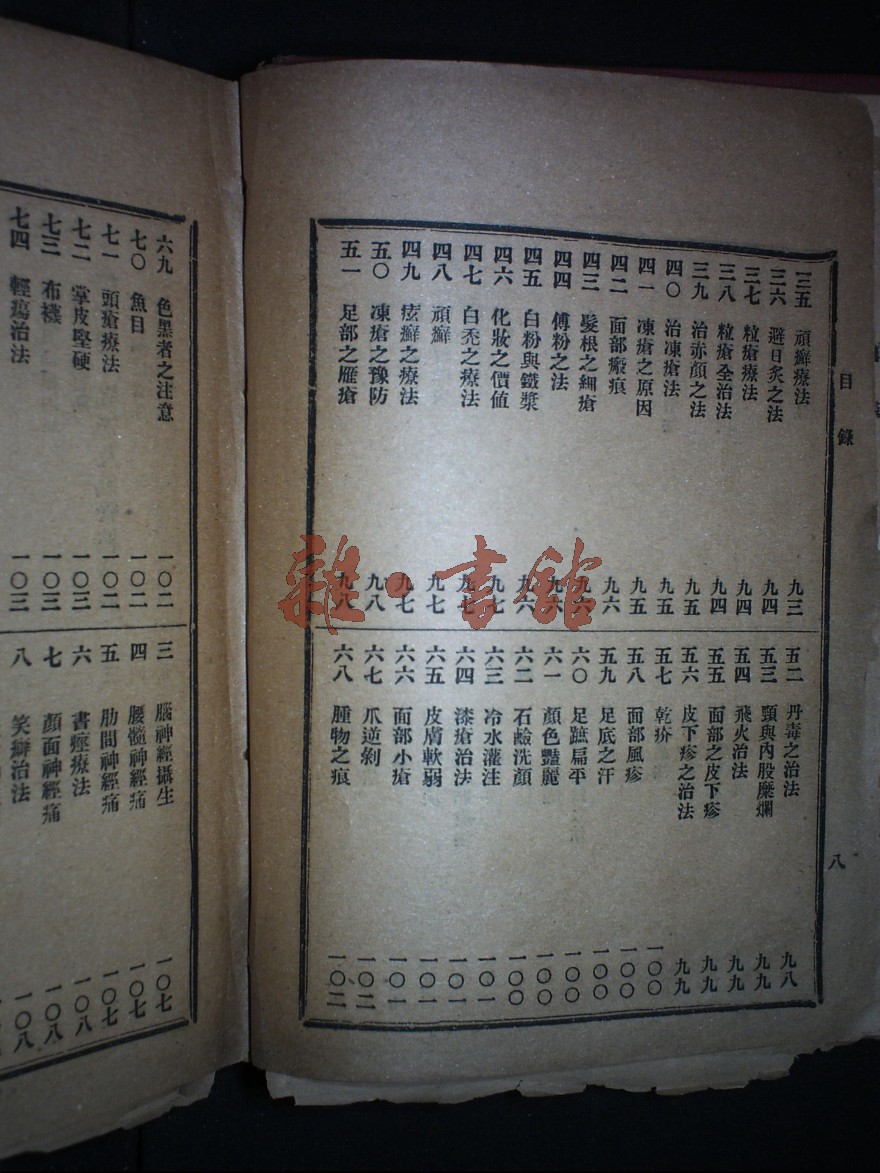 目錄
三五 頑癬療法 九三
三六 避日炙之法 九四
三七 粒瘡療法 九四
三八 粒瘡全治法 九四
三九 治赤顔之法 九五
四〇 治凍瘡法 九五
四一 凍瘡之原因 九五
四二 面部瘢痕 九六
四三 髮根之細瘡 九六
四四 傅粉之法 九六
四五 白粉與鐵漿 九六
四六 化妝之價値 九七
四七 白禿之療法 九七
四八 頑癬 九七
四九 痃癬之療法 九七
五〇 凍瘡之豫防 九八
五一 足部之雁瘡 九八
五二 丹毒之治法 九八
五三 頸與內股糜爛 九九
五四 飛火治法 九九
五五 面部之皮下疹 九九
五六 皮下疹之治法 九九
五七 乾疥 一〇〇
五八 面部風疹 一〇〇
五九 足底之汗 一〇〇
六〇 足蹠扁平 一〇〇
六一 顏色豔麗 一〇〇
六二 石鹼洗顏 一〇〇
六三 冷水灌注 一〇一
六四 漆瘡治法 一〇一
六五 皮膚軟弱 一〇一
六六 面部小瘡 一〇一
六七 爪逆剝 一〇二
六八 腫物之痕 一〇二
八
六九 色黑者之注意 一〇二
七〇 魚目 一〇二
七一 頭瘡療法 一〇二
七二 掌皮堅硬 一〇三
七三 布襪 一〇三
七四 輕瘍治法 一〇三
三 腦神經攝生 一〇七
四 腰髓神經痛 一〇七
五 肋間神經痛 一〇七
六 書痙療法 一〇八
七 顏面神經痛 一〇八
八 笑癖治法 一〇八
雜·書館